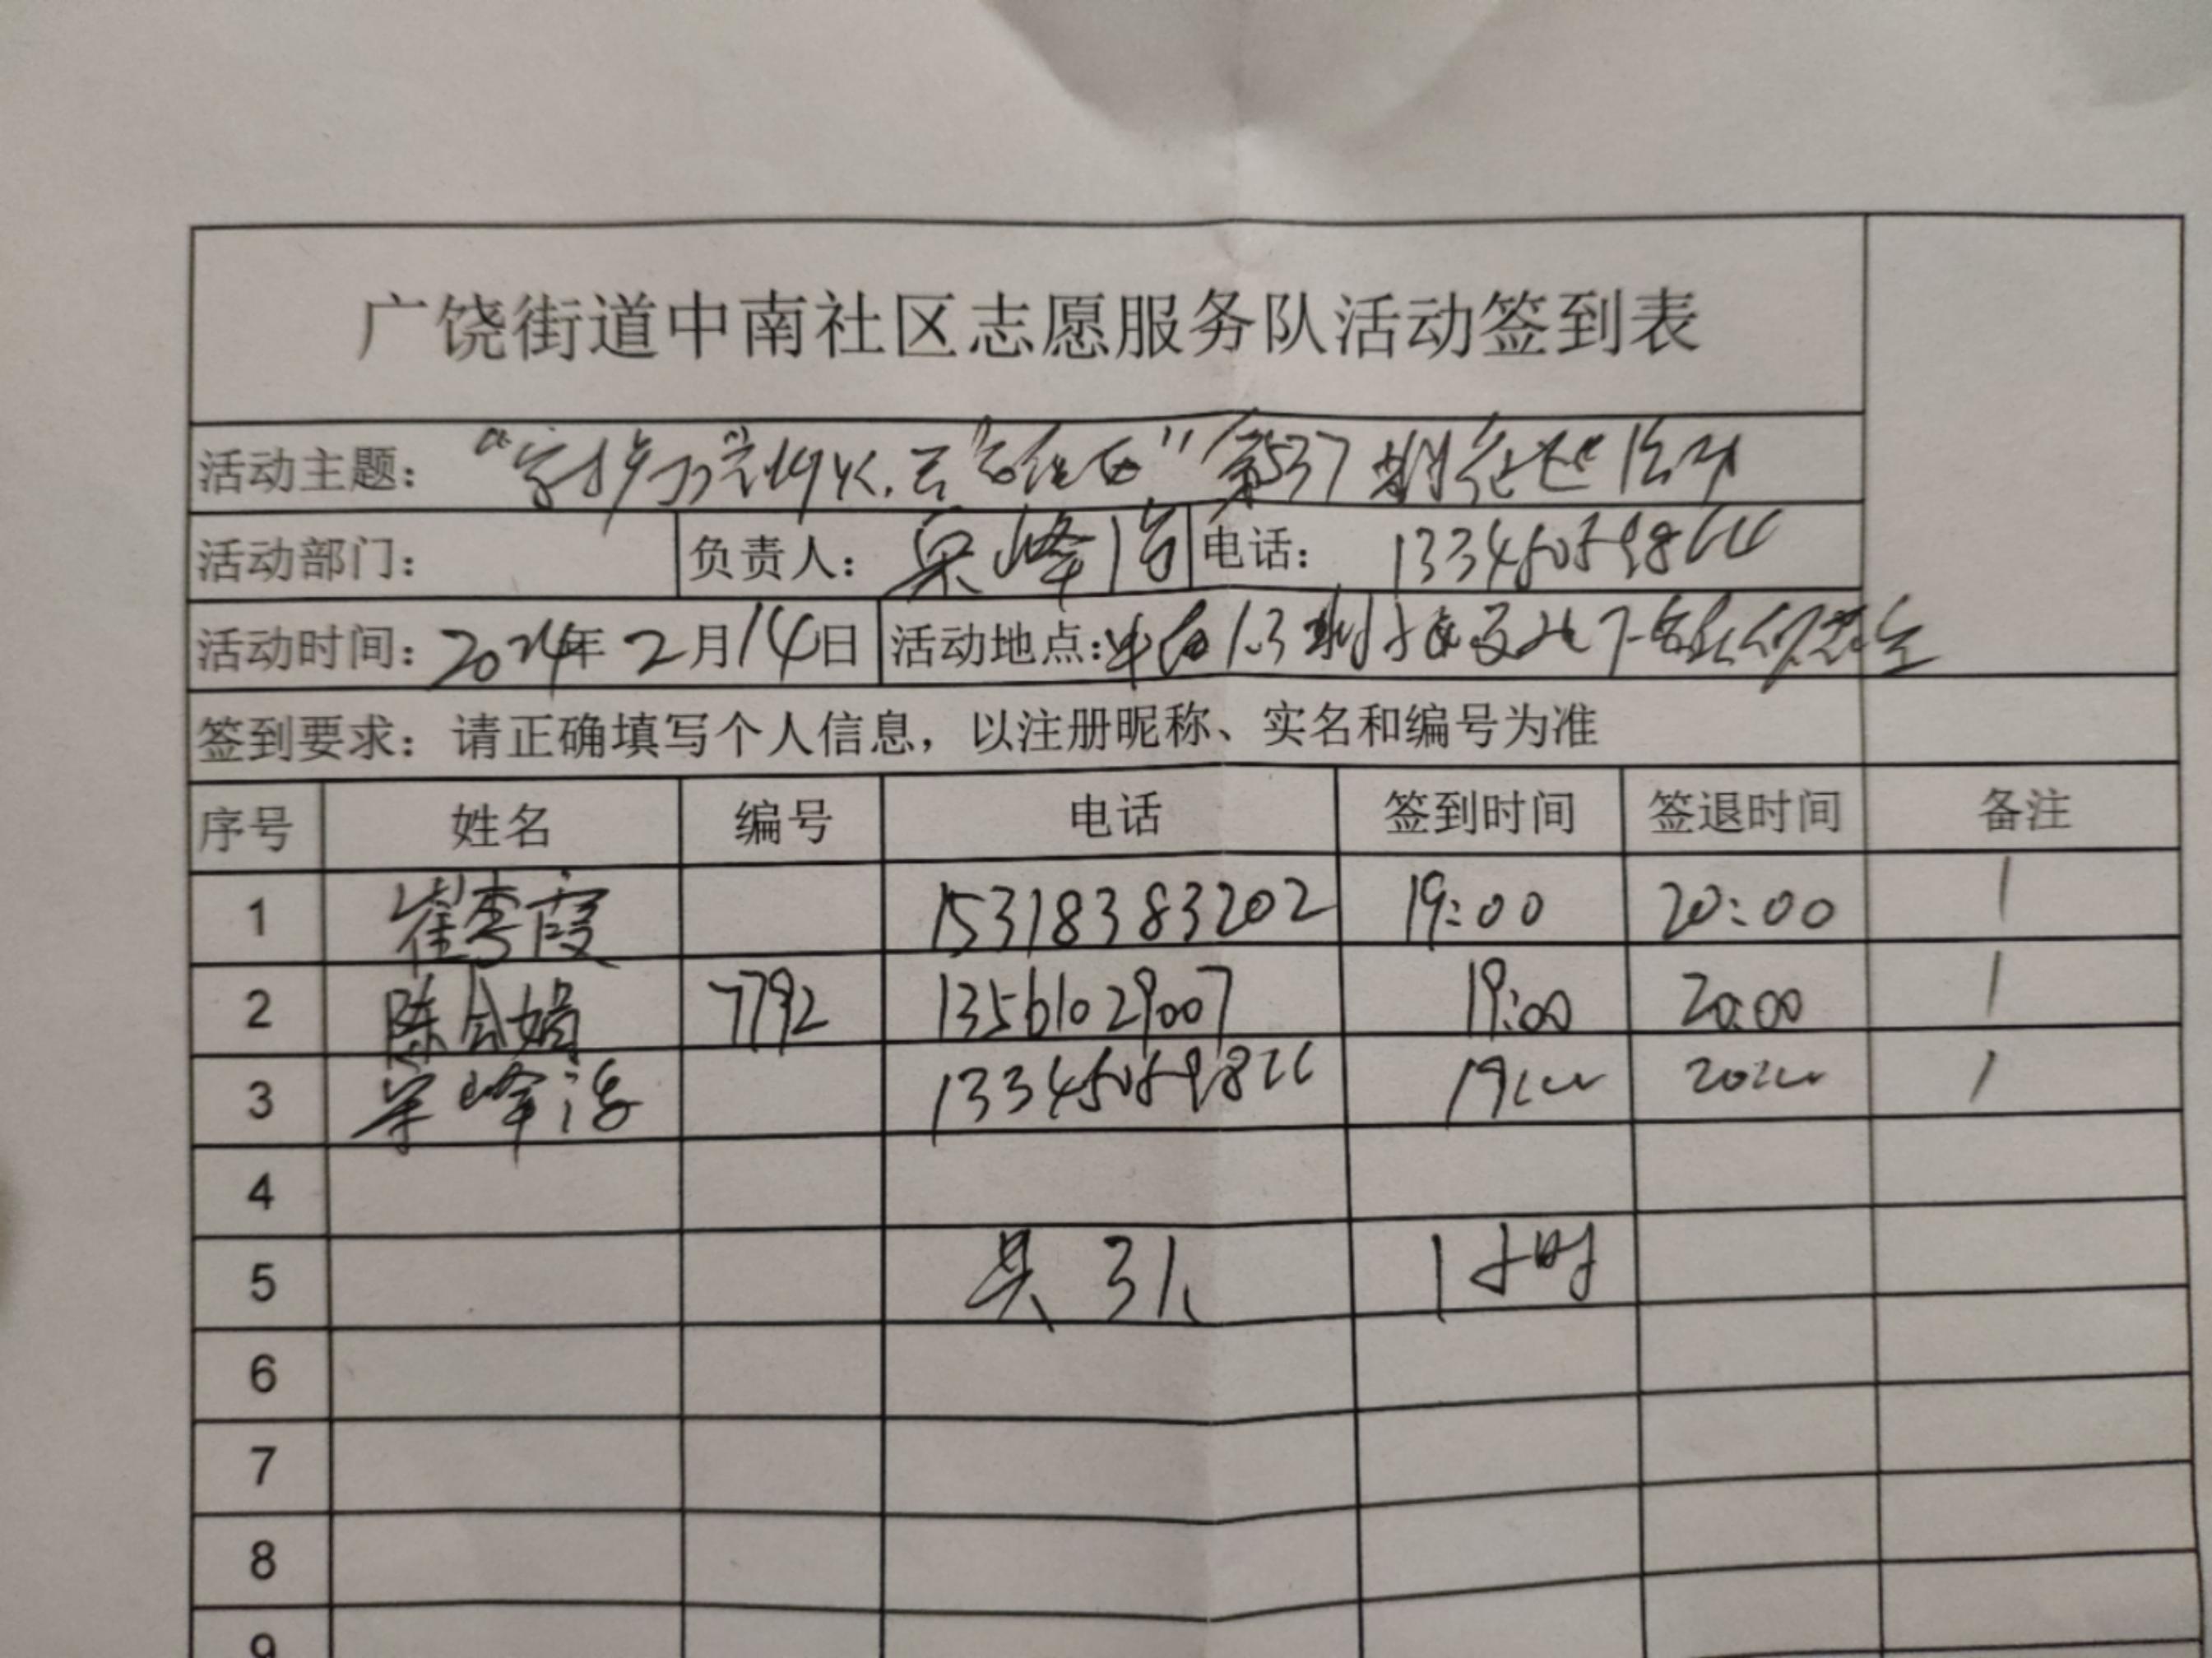 广饶街道中南社区志愿服务队活动签到表
活动主题： 第537期 活动
活动部门： 负责人： 峰 电话： 13345059866
活动时间：2024年2月14日 活动地点：
签到要求：请正确填写个人信息，以注册昵称、实名和编号为准
序号 姓名 编号 电话 签到时间 签退时间 备注
1 崔秀霞 15318383202 19:00 20:00 1
2 陈会娟 7792 13561029007 19:00 20:00 1
3 峰 13345059866 19:00 20:00 1
4
5 共3人 1小时
6
7
8
9